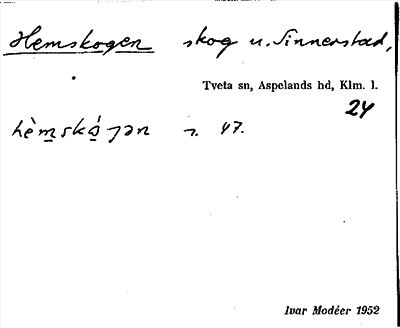 Hemskogen skog u. Sinnerstad,
Tveta sn, Aspelands hd, Klm. l.
24
hèm̲skó̲ɟən 47.
Ivar Modéer 1952